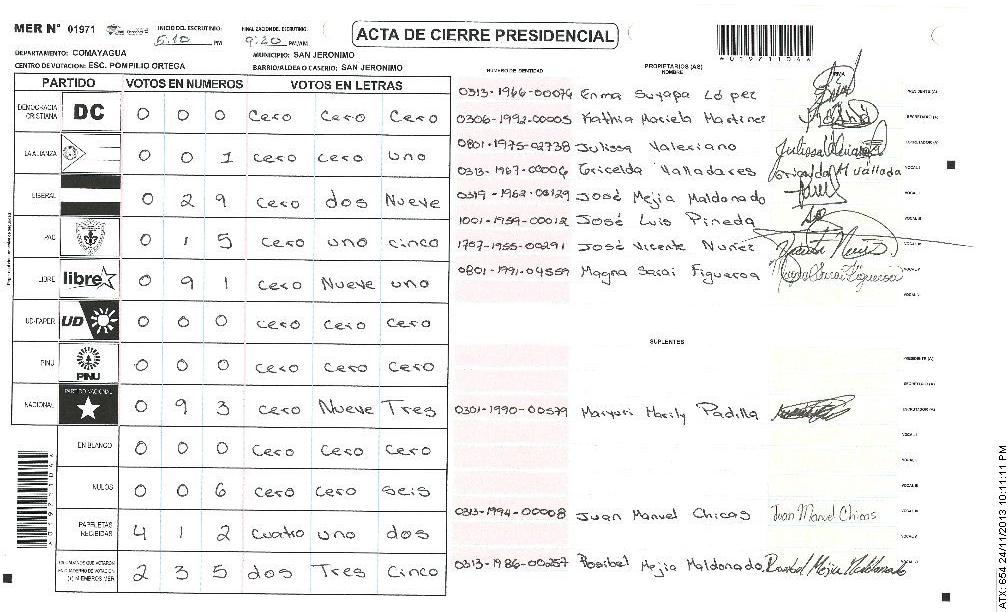 MER N° 01971
INICIO DEL ESCRUTINIO: 5:10 PM
FINALIZACION DEL ESCRUTINIO: 9:20 PM/AM.
ACTA DE CIERRE PRESIDENCIAL
DEPARTAMENTO: COMAYAGUA
MUNICIPIO: SAN JERONIMO
CENTRO DE VOTACION: ESC. POMPILIO ORTEGA
BARRIO/ALDEA O CASERIO: SAN JERONIMO
PARTIDO VOTOS EN NUMEROS VOTOS EN LETRAS
DEMOCRACIA CRISTIANA DC 0 0 0 Cero Cero Cero
LA ALIANZA 0 0 1 cero cero uno
LIBERAL 0 2 9 cero dos Nueve
PAC 0 1 5 cero uno cinco
LIBRE libre 0 9 1 cero Nueve uno
UD-FAPER UD 0 0 0 cero cero cero
PINU PINU 0 0 0 cero cero cero
NACIONAL PARTIDO NACIONAL 0 9 3 cero Nueve Tres
EN BLANCO 0 0 0 cero cero cero
NULOS 0 0 6 cero cero seis
PAPELETAS RECIBIDAS 4 1 2 cuatro uno dos
CIUDADANOS QUE VOTARON EN CUADERNO DE VOTACION (+) MIEMBROS MER 2 3 5 dos Tres Cinco
NUMERO DE IDENTIDAD
PROPIETARIOS (AS)
NOMBRE
FIRMA
0313-1966-00074 Enma Suyapa López PRESIDENTE (A)
0306-1992-00005 Kathia Mariela Martinez SECRETARIO (A)
0801-1975-02738 Julissa Valeriano ESCRUTADOR (A)
0313-1967-00006 Gricelda Valladares VOCAL I
0319-1962-00129 José Mejia Maldonado VOCAL II
1001-1959-00012 José Luis Pineda VOCAL III
1707-1955-00291 José Vicente Nuñez VOCAL IV
0801-1991-04559 Magna Sarai Figueroa VOCAL V
SUPLENTES
PRESIDENTE (A)
SECRETARIO (A)
0301-1990-00579 Maryuri Marily Padilla ESCRUTADOR (A)
VOCAL I
VOCAL II
VOCAL III
0313-1994-00008 Juan Manuel Chicas Juan Manuel Chicas VOCAL IV
VOCAL V
0313-1986-00257 Rosibel Mejia Maldonado Rosibel Mejia Maldonado
ATX: 654 24/11/2013 10:11:11 PM